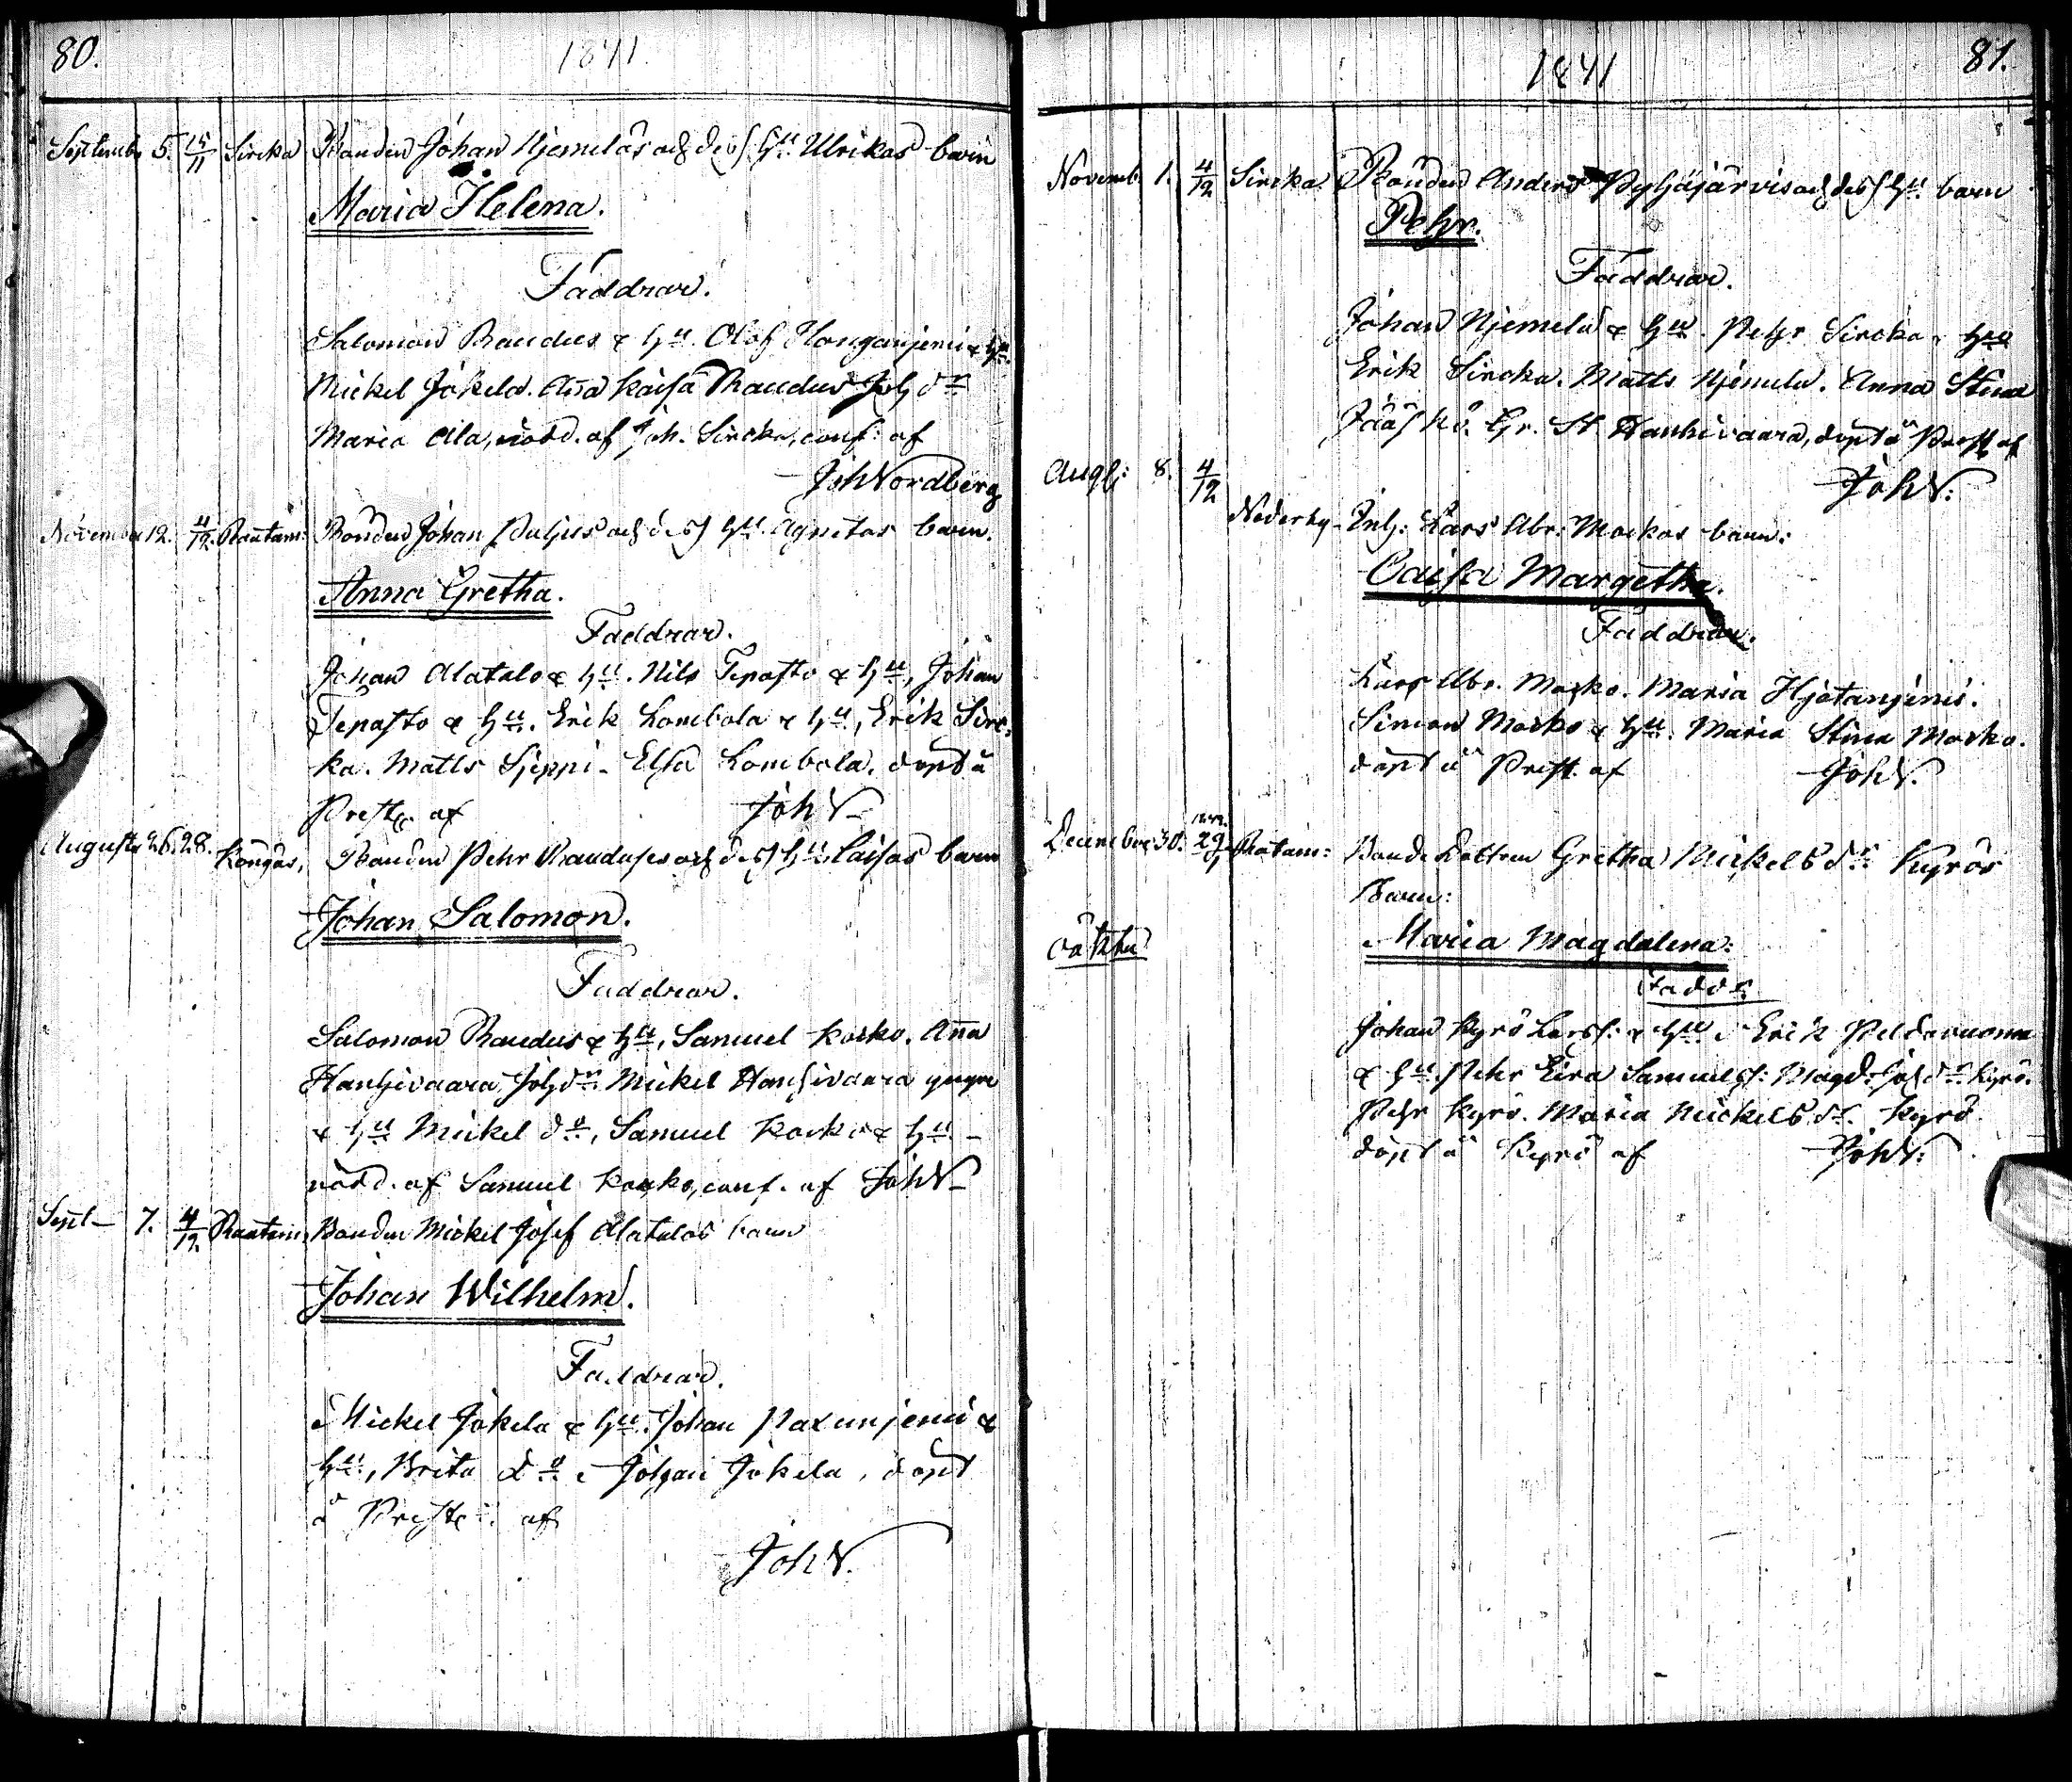 80. 1841.
Septemb. 5. 15/11 Sircka Bonden Johan Njemeläs och dess hu Ulrikas barn
Maria Helena.
Faddrar.
Salomon Raudus & hu. Olof Honganjemi & hu.
Mickel Jokela. Aña Kaisa Raudus Joh dr
Maria Ala, nödd. af Joh. Sircka, conf. af
Joh Nordberg
November 12. 4/12. Rautam: Bonden Johan Puljus och dess hu Agnetas barn.
Anna Gretha.
Faddrar.
Johan Alatalo & hu. Nils Tepasto & hu, Johan
Tepasto & hu. Erik Lombola & hu, Erik Sirc-
ka. Matts Sieppi. Elsa Lombola. döpt å
Prestg. af Joh N.
Augusti 26. 28. Köngäs, Bonden Pehr Raudus och dess hu Caisas barn
Johan Salomon.
Faddrar.
Salomon Raudus & hu, Samuel Kosko. Aña
Hanhivaara Joh dr Mickel Hanhivaara yngre
& hu Mickel do, Samuel Kosko & hu
nödd. af Samuel Kosko, conf. af Joh N.
Sept 7. 4/12. Rautam: Bonden Mickel Josef Alatalos barn
Johan Wilhelm.
Faddrar.
Mickel Jokela & hu. Johan Paxunjemi &
hu, Brita do Johan Jokela, döpt
å Prestg: af
Joh N.
81. 1841
Novemb. 1. 4/12 Sircka. Bonden Anders Pyhäjärvis och dess hu. barn
Pehr.
Faddrar.
Johan Njemelä & hu. Pehr Sircka & hu
Erik Sircka. Matts Njemelä. Anna Stina
Jääskö. Gr. St. Hanhivaara, döpt å Prestg af
Joh N:
Augti: 8. 4/12
Nederky. Inh: Lars Abr: Mackos barn:
Caisa Margetha.
Faddrar.
Lars Abr. Macko. Maria Hjetanjemi.
Simon Macko & hu. Maria Stina Macko.
döpt å Prest. af Joh N.
December 30. 1842. 29/1 Rotam: Bonde Dottren Gretha Mickels dr Kyrös
Barn:
oäkta Maria Magdalena:
Fadd r
Johan Kyrö Larss: & hu. Erik Peldovuoma
& hu. Pehr Eira Samuels: Magd: Joh dr Kyrö.
Pehr Kyrö. Maria Mickels dr. Kyrö
döpt å Kyrö af Joh N: